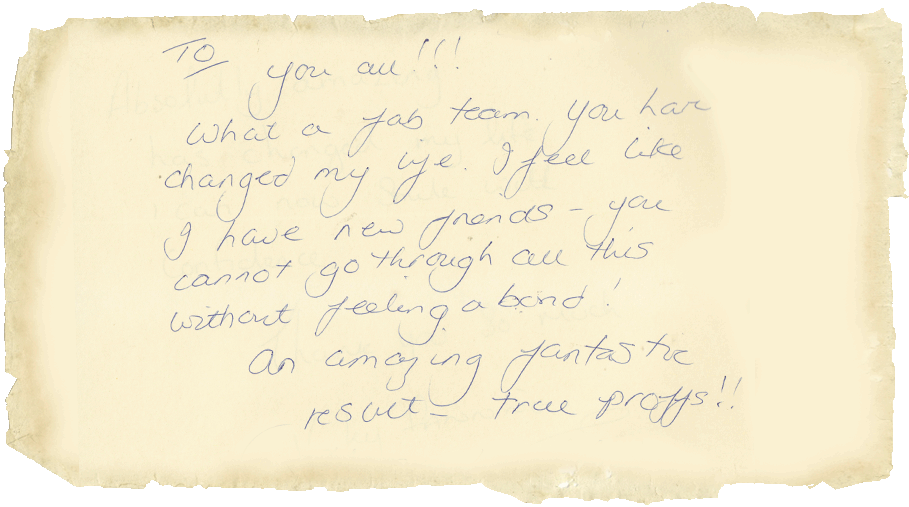 TO
you all!!!
What a fab team. You have
changed my life. I feel like
I have new friends - you
cannot go through all this
without feeling a bond!
An amazing fantastic
result - true proffs!!